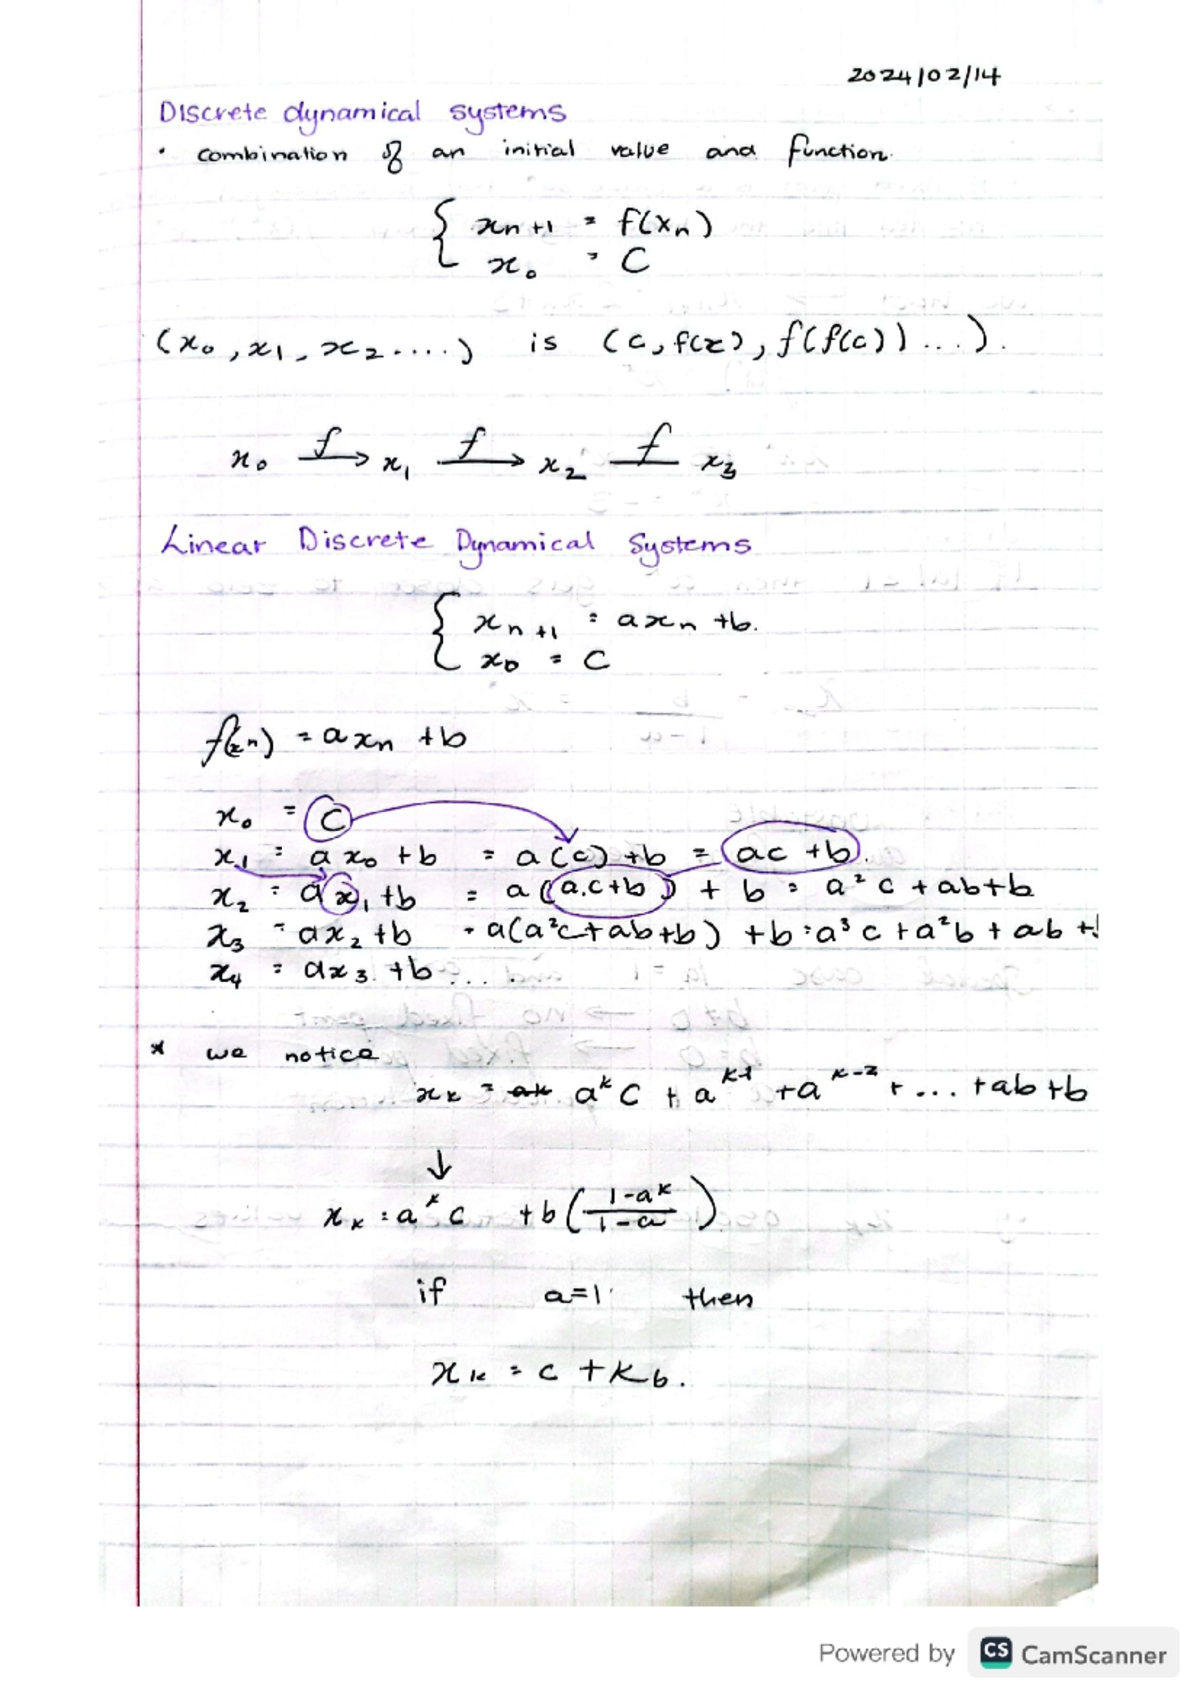 2024/02/14
Discrete dynamical systems
• combination of an initial value and function.
{ xₙ₊₁ = f(xₙ)
x₀ = C
(x₀, x₁, x₂....) is (c, f(x), f(f(c))...).
x₀ —f→ x₁ —f→ x₂ —f— x₃
Linear Discrete Dynamical Systems
{ xₙ₊₁ = axₙ + b.
x₀ = C
f(xₙ) = axₙ + b
x₀ = C
x₁ = ax₀ + b = a(c) + b = ac + b.
x₂ = ax₁ + b = a(a.c+b) + b = a²c + ab + b
x₃ = ax₂ + b = a(a²c + ab + b) + b = a³c + a²b + ab +
x₄ = ax₃ + b ....
* we notice
xₖ = aᵏc + aᵏ⁻¹ + aᵏ⁻² + ... + ab + b
↓
xₖ = aᵏc + b(1-aᵏ/1-a)
if a=1 then
xₖ = c + kb.
Powered by CS CamScanner